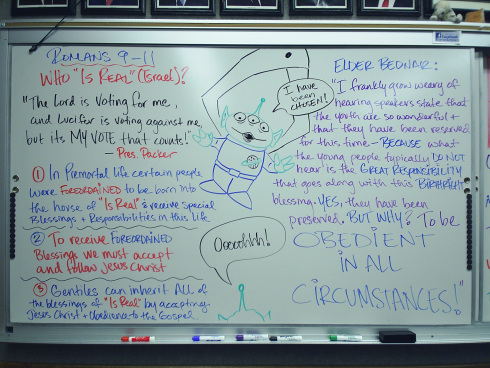 ROMANS 9-11
WHO "Is REAL" (Israel)?
"The Lord is Voting for me,
and Lucifer is voting against me,
but its MY VOTE that counts!"
- Pres. Packer
① In Premortal life certain people
were FOREORDAINED to be born into
the house of "Is Real" & receive Special
Blessings + Responsibilities in this life
② To receive FOREORDAINED
Blessings we must accept
and follow Jesus Christ
③ Gentiles can inherit ALL of
the blessings of "Is Real" by accepting
Jesus Christ + Obedience to the Gospel
I have
been
CHOSEN!
Ooooohhh!
ELDER BEDNAR:
"I frankly grow weary of
hearing speakers state that
the youth are so wonderful +
that they have been reserved
for this time - BECAUSE what
the young people typically DO NOT
hear is the GREAT RESPONSIBILITY
that goes along with this BIRTHRIGHT
blessing. YES, they have been
preserved. BUT WHY? To be
OBEDIENT
IN ALL
CIRCUMSTANCES!"
facebook